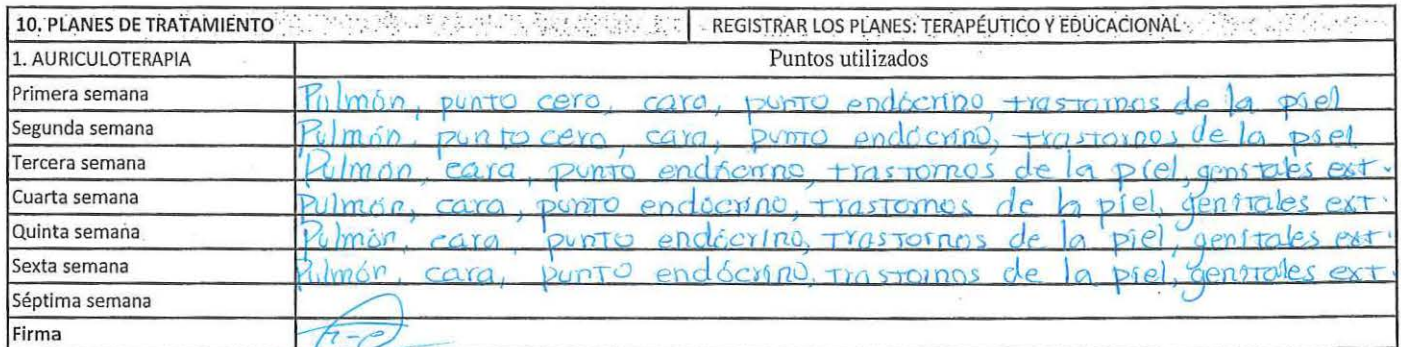 10. PLANES DE TRATAMIENTO REGISTRAR LOS PLANES: TERAPÉUTICO Y EDUCACIONAL
1. AURICULOTERAPIA Puntos utilizados
Primera semana Pulmón, punto cero, cara, punto endócrino trastornos de la piel
Segunda semana Pulmón, punto cero, cara, punto endócrino, trastornos de la piel
Tercera semana Pulmón, cara, punto endócrino, trastornos de la piel, genitales ext.
Cuarta semana Pulmón, cara, punto endócrino, trastornos de la piel, genitales ext.
Quinta semana Pulmón, cara, punto endócrino, trastornos de la piel, genitales ext.
Sexta semana Pulmón, cara, punto endócrino, trastornos de la piel, genitales ext.
Séptima semana
Firma